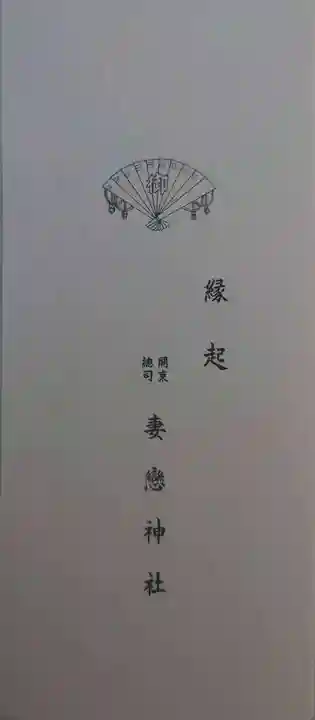 御
縁起
関東
総司
妻戀神社